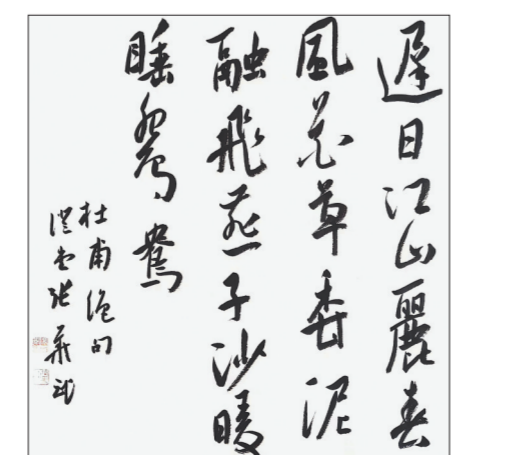 遲日江山麗春
風花草香泥
融飛燕子沙暖
睡鴛鴦
杜甫絶句